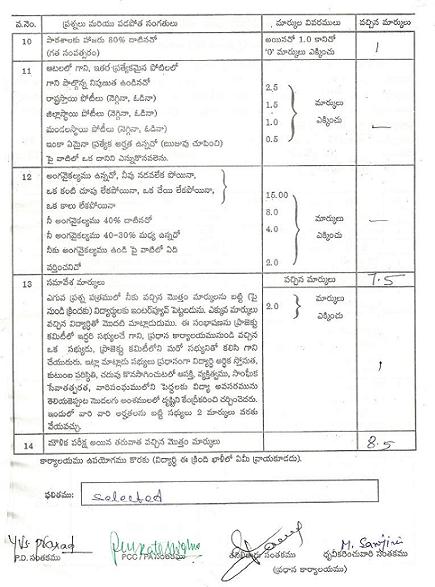 వ.నెం. ప్రశ్నలు మరియు పడపోత సంగతులు మార్కుల వివరములు వచ్చిన మార్కులు
10 పాఠశాలకు హాజరు 80% దాటినచో అయినచో 1.0 కానిచో 1
(గత సంవత్సరం) '0' మార్కులు ఎక్కించు
11 ఆటలలో గాని, ఇతర ప్రత్యేకమైన పోటీలలో
గాని పాల్గొన్న నిపుణుత ఉండినచో 2.5
రాష్ట్రస్థాయి పోటీలు (నెగ్గినా, ఓడినా) 1.5 మార్కులు
జిల్లాస్థాయి పోటీలు (నెగ్గినా, ఓడినా) 1.0 ఎక్కించు
మండలస్థాయి పోటీలు (నెగ్గినా, ఓడినా) 0.5 —
ఇంకా ఏమైనా ప్రత్యేక అర్హత ఉన్నచో (ఋజువు చూపించి)
పై వాటిలో ఒక దానిని ఎన్నుకొనవలెను.
12 అంగవైకల్యము ఉన్నచో, నీవు నడవలేక పోయినా,
ఒక కంటి చూపు లేకపోయినా, ఒక చేయి లేకపోయినా, 15.00
ఒక కాలు లేకపోయినా 8.0
నీ అంగవైకల్యము 40% దాటినచో 4.0 మార్కులు —
నీ అంగవైకల్యము 40-30% మధ్య ఉన్నచో ఎక్కించు
నీకు అంగవైకల్యము ఉండి పై వాటిలో ఏది 2.0
వర్తించనిచో
13 సమావేశ మార్కులు వచ్చిన మార్కులు 7.5
ఎగువ ప్రశ్న పత్రములో నీకు వచ్చిన మొత్తం మార్కులను బట్టి (పై 2.0 మార్కులు
నుండి క్రిందకు) విద్యార్థులకు ఇంటర్వ్యూవ్ పెట్టబడును. ఎక్కువ మార్కులు ఎక్కించు
వచ్చిన విద్యార్థితో మొదటి మాట్లాడుదుము. ఈ సంభాషణను ప్రాజెక్టు
కమిటీలో ఇద్దరి సభ్యులచే గాని, ప్రధాన కార్యాలయమునుండి వచ్చిన
ఒక సభ్యుడు, ప్రాజెక్టు కమిటీలోని మరో సభ్యునితో కలిసి గాని
చేయుదురు. ఇట్లా మాట్లాడు సభ్యులు ప్రధానంగా విద్యార్థి ఆర్థిక స్తోమత, 1
కుటుంబ పరిస్థితి, చదువు కొనసాగించుటలో ఆసక్తి, వ్యక్తిత్వము, సాంఘీక
సేవాతత్పరత, వారిసంఘములోని పెద్దలకు విద్యా అవసరమును
తెలియజెప్పుట మొదలగు అంశములలో దృష్టిని కేంద్రీకరించి చర్చించెదరు.
ఇందులో వారి వారి అర్హతలను బట్టి సభ్యులు 2 మార్కులు వరకు
వేయవచ్చు.
14 మౌళిక పరీక్ష అయిన తరువాత వచ్చిన మొత్తం మార్కులు 8.5
కార్యాలయము ఉపయోగము కొరకు (విద్యార్థి ఈ క్రింది ఖాళీలో ఏమీ వ్రాయకూడదు).
ఫలితము: selected
M. Sarojini
P.D. సంతకము PCC / PA సంతకము సంతకము ధృవీకరించువారి సంతకము
(ప్రధాన కార్యాలయం)